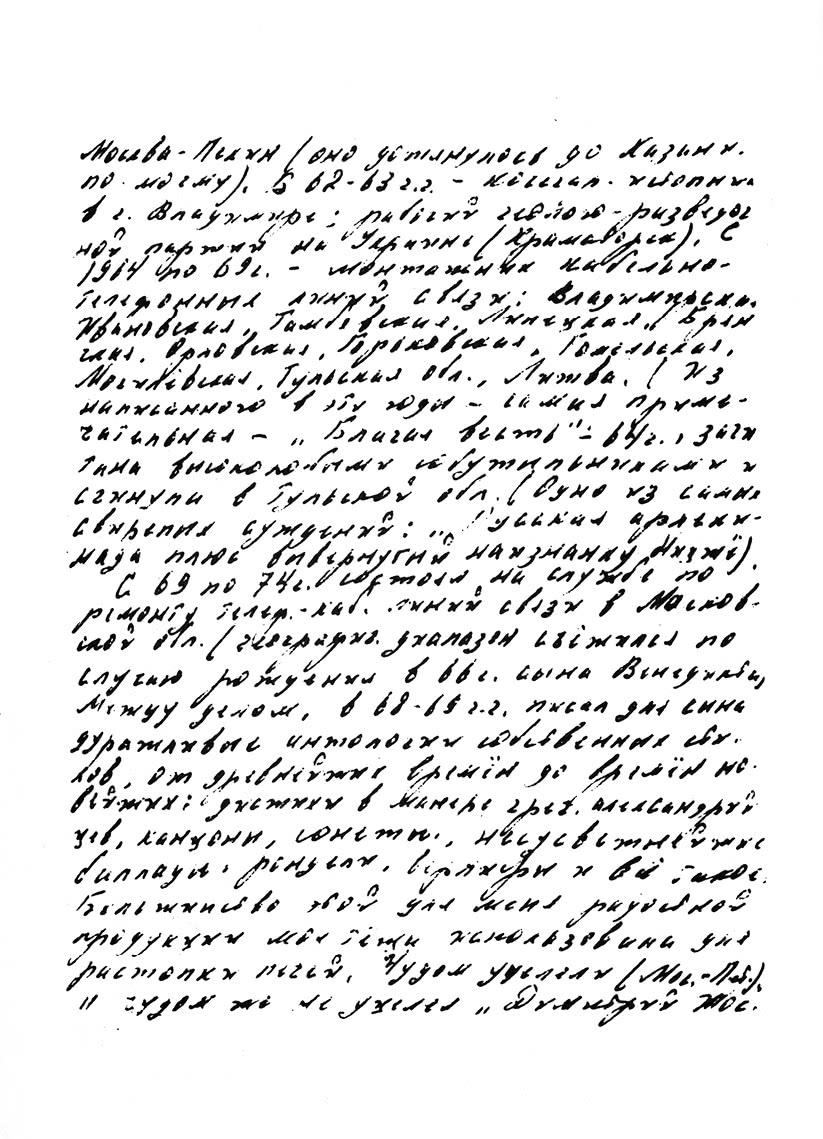 Москва-Пекин (оно дотянулось до Хазани.
по-моему). В 62-63 г.г. - кочегар-истопник
в г. Владимире; рабочий геолого-разведоч
ной партии на Украине (Краматорск). С
1964 по 69 г. - монтажник кабельно-
телефонных линий связи: Владимирска.
Ивановская, Тамбовская, Липецкая, Брян
ская, Орловская, Горьковская, Гомельская,
Могилёвская, Тульская обл., Литва. (Из
написанного в эти годы - самая приме-
чательная - „Благая весть" - 64 г., зачи
тана высоколобыми собутыльниками и
сгинула в Тульской обл. (Одно из самых
свирепых суждений: „Русская арлеки-
нада плюс вывернутый наизнанку Ницше).
С 69 по 74 г. состоял на службе по
ремонту телеф.-каб. линий связи в Москов-
ской обл. (географич. диапазон съёжился по
случаю рождения в 66 г. сына Венедикта,
Между делом, в 68-69 г.г. писал для сына
дуражливые антологии собственных сти-
хов, от древнейших времён до времён но-
вейших: дистихи в манере греч. александрий
цев, канцоны, сонеты, несусветнейшие
баллады, рондели, верлибры и всё такое.
Большинство этой для меня радостной
продукции моя тёща использовала для
растопки печей. Чудом уцелели (Мос.-Пет.),
и чудом же не уцелел „Димитрий Шос.